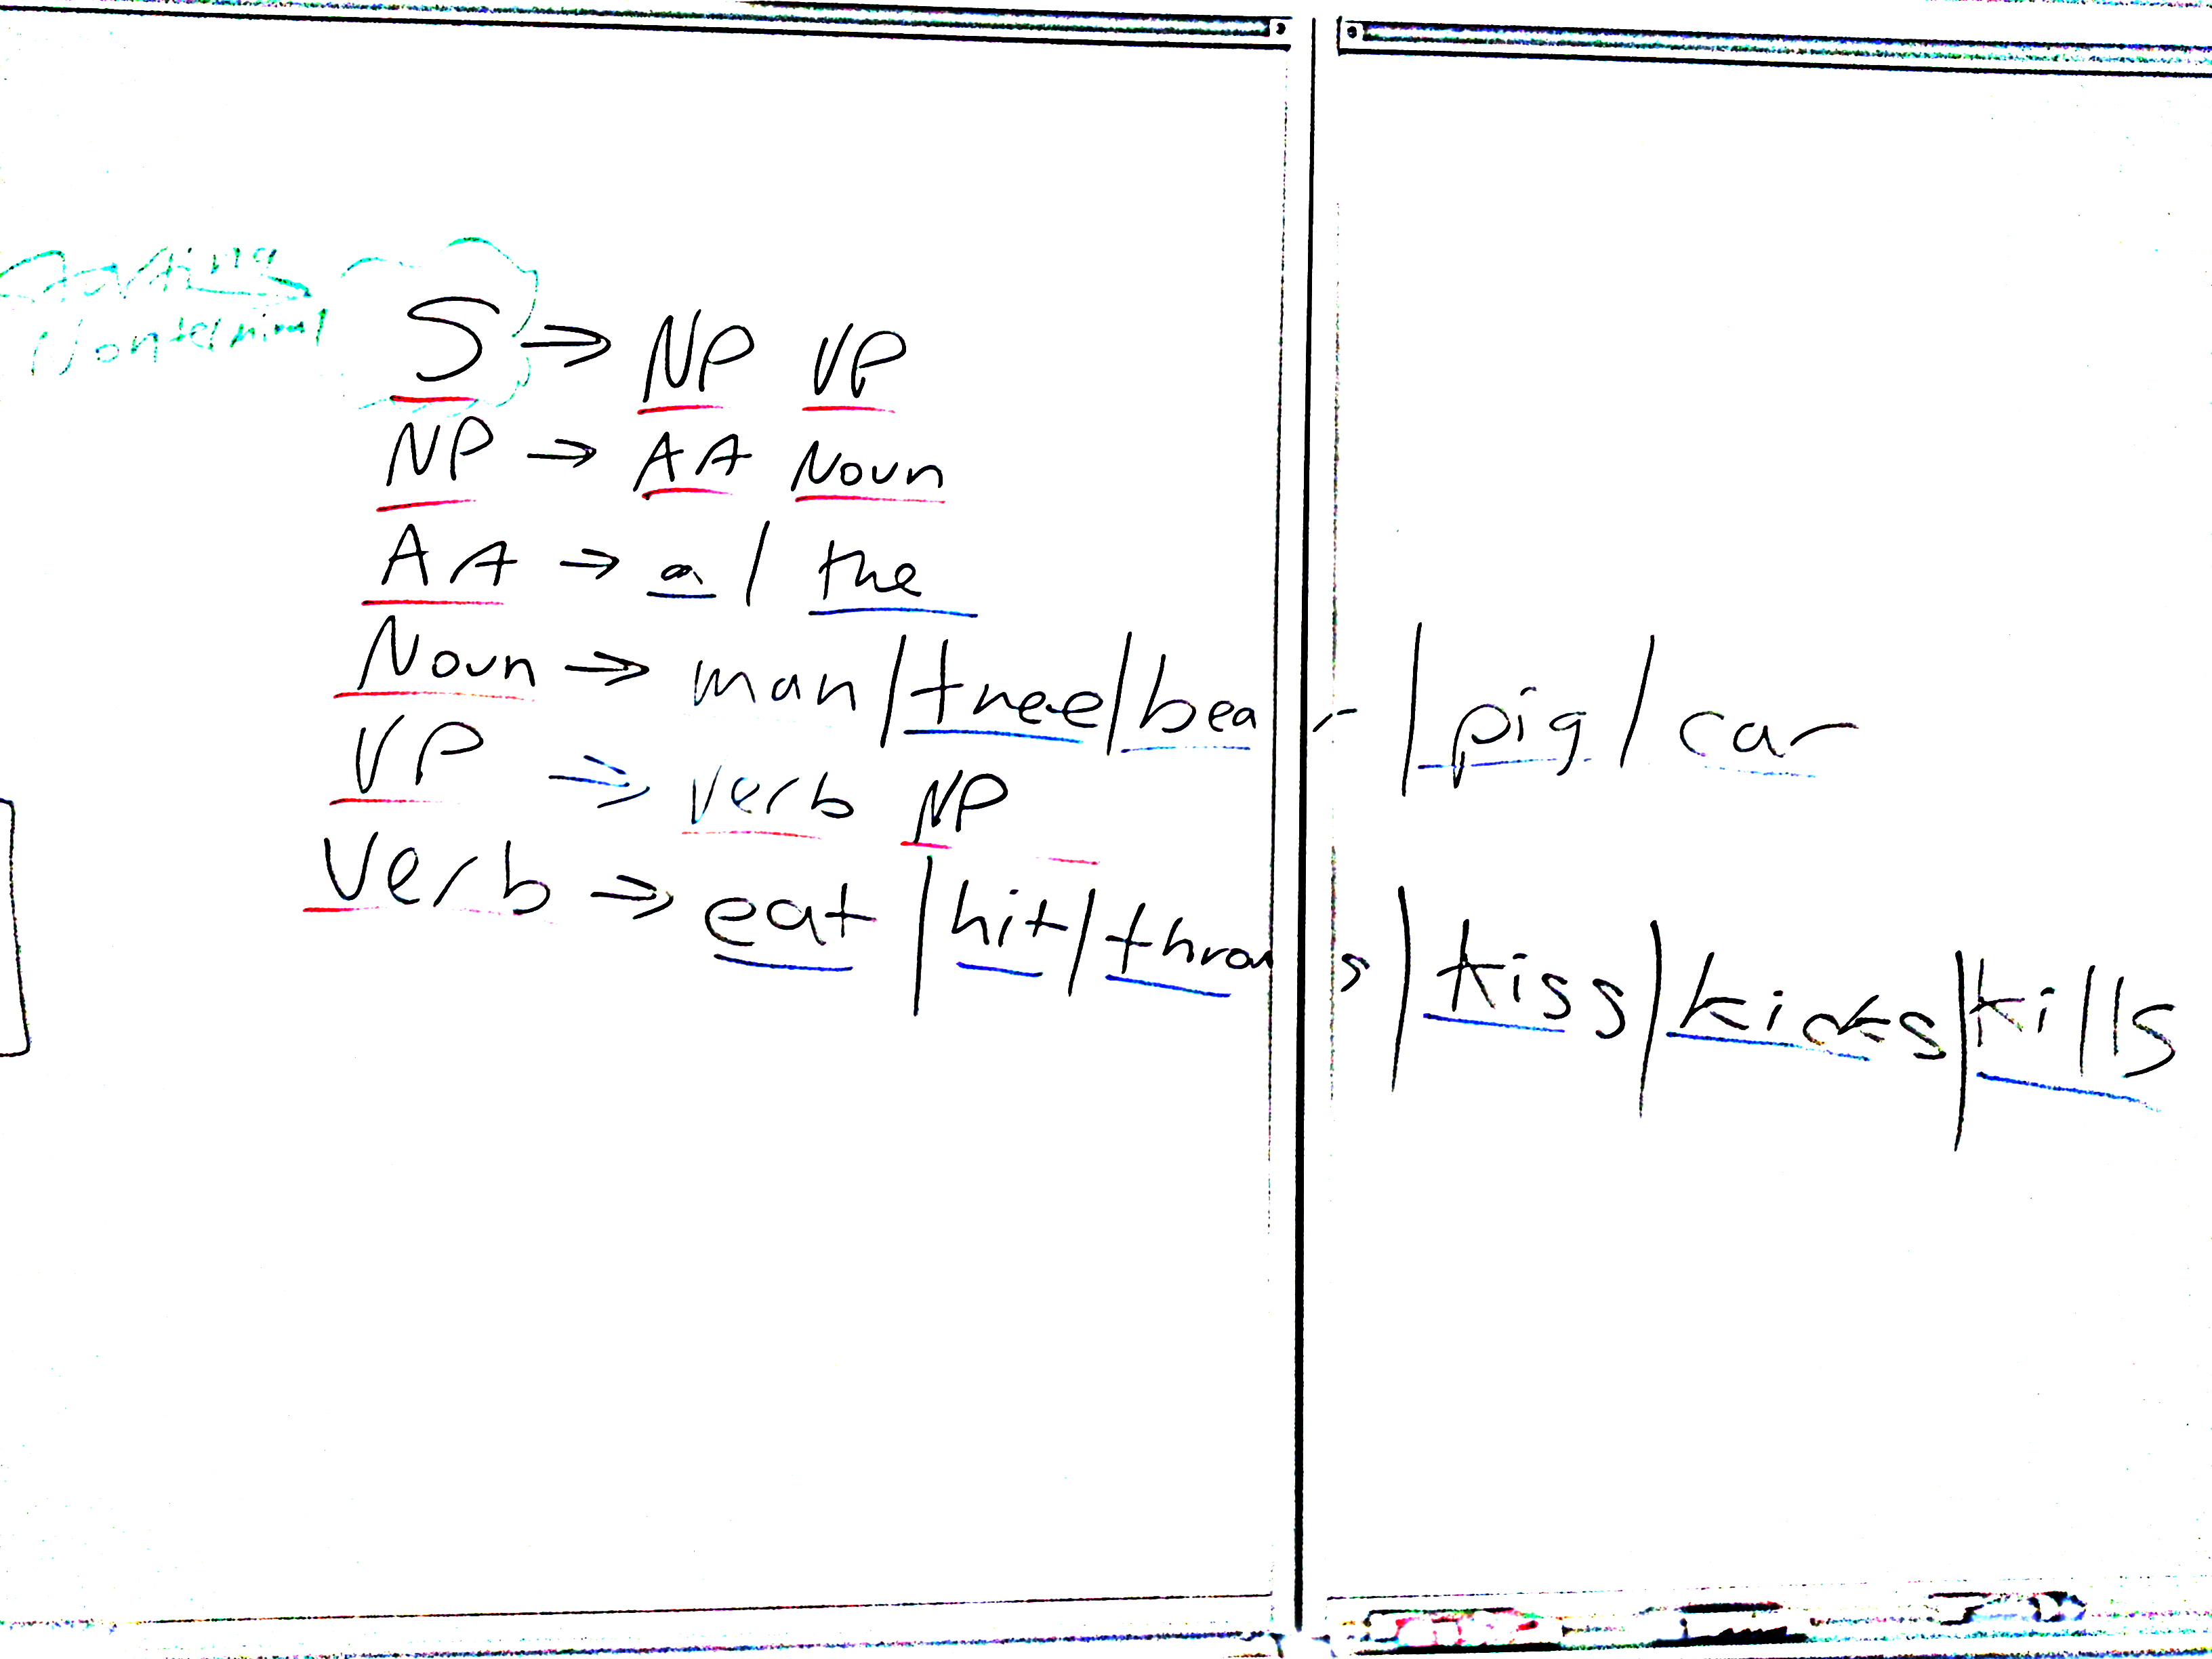 Starting
Nonterminal
S → NP VP
NP → AA Noun
AA → a / the
Noun → man / tree / bear / pig / car
VP → verb NP
Verb → eat / hit / throws / kiss / kicks / kills